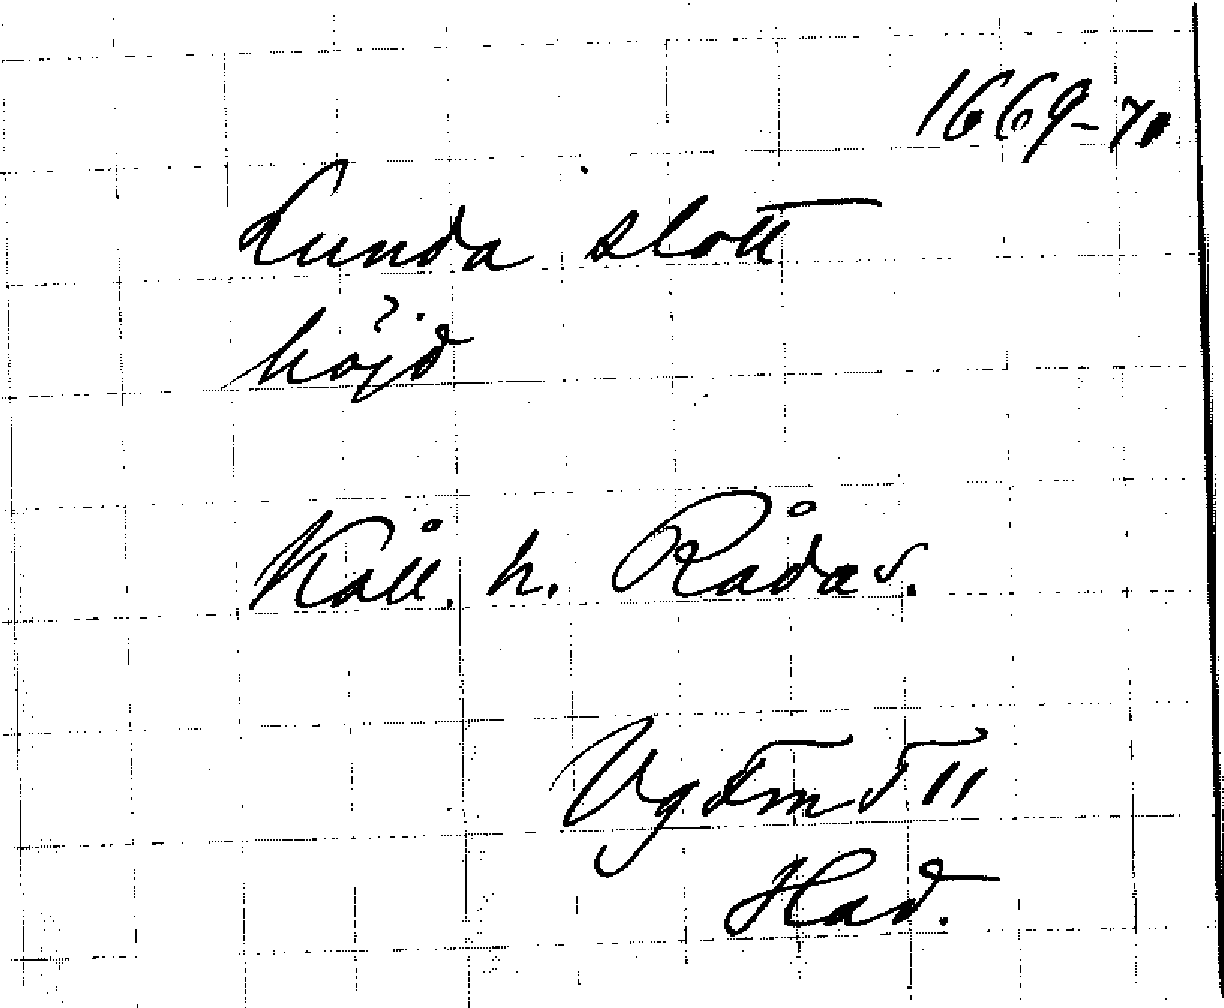 1669-70
Lunda slott
höjd
Kåll. h. Rådav.
Vg Fm T 11
Had.